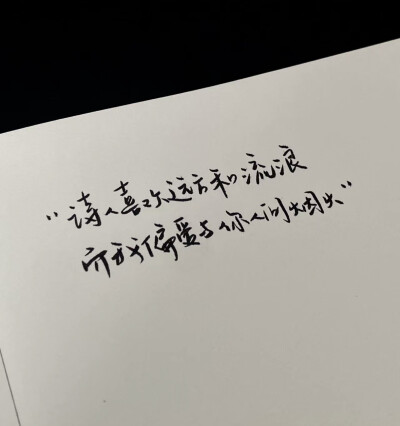 “诗人喜欢远方和流浪
而我偏爱与你人间烟火”